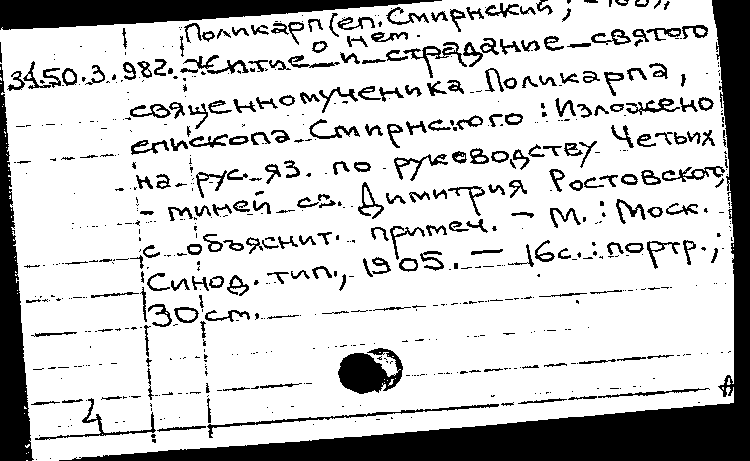 Поликарп (еп. Смирнский; -166),
о нем.
34.50.3.982. Житие и страдание святого
священномученика Поликарпа,
епископа Смирнского : Изложено
на рус. яз. по руководству Четьих
- миней св. Димитрия Ростовского,
с объяснит. примеч. - М. : Моск.
Синод. тип., 1905. — 16с. : портр.;
30 см.
4
А